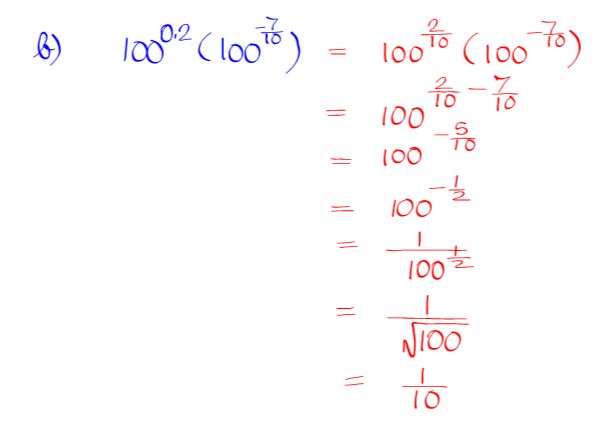 b) 100^{0.2} (100^{-7/10}) = 100^{2/10} (100^{-7/10})
= 100^{2/10 - 7/10}
= 100^{-5/10}
= 100^{-1/2}
= 1/100^{1/2}
= 1/√100
= 1/10